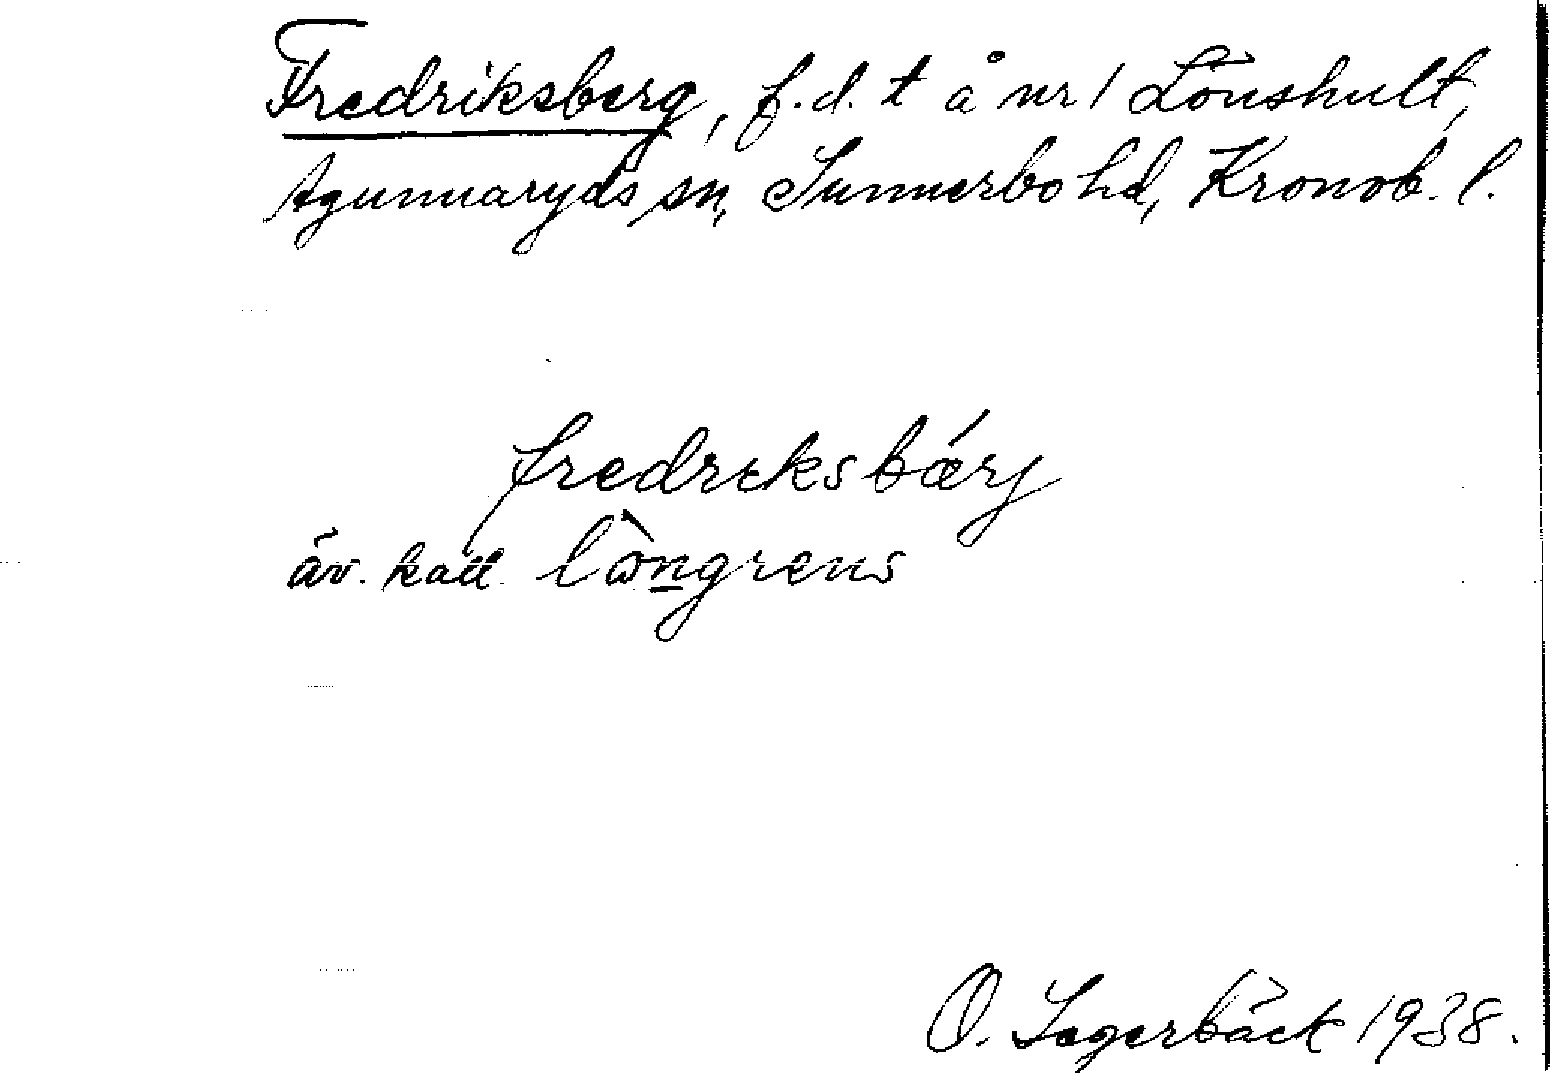 Fredriksberg, f.d. t å nr 1 Lönshult,
Agunnaryds sn, Sunnerbo hd, Kronob. l.
fredreksbǽrj
äv. kall. lɷ̀n̲grens
O. Lagerbäck 1938.